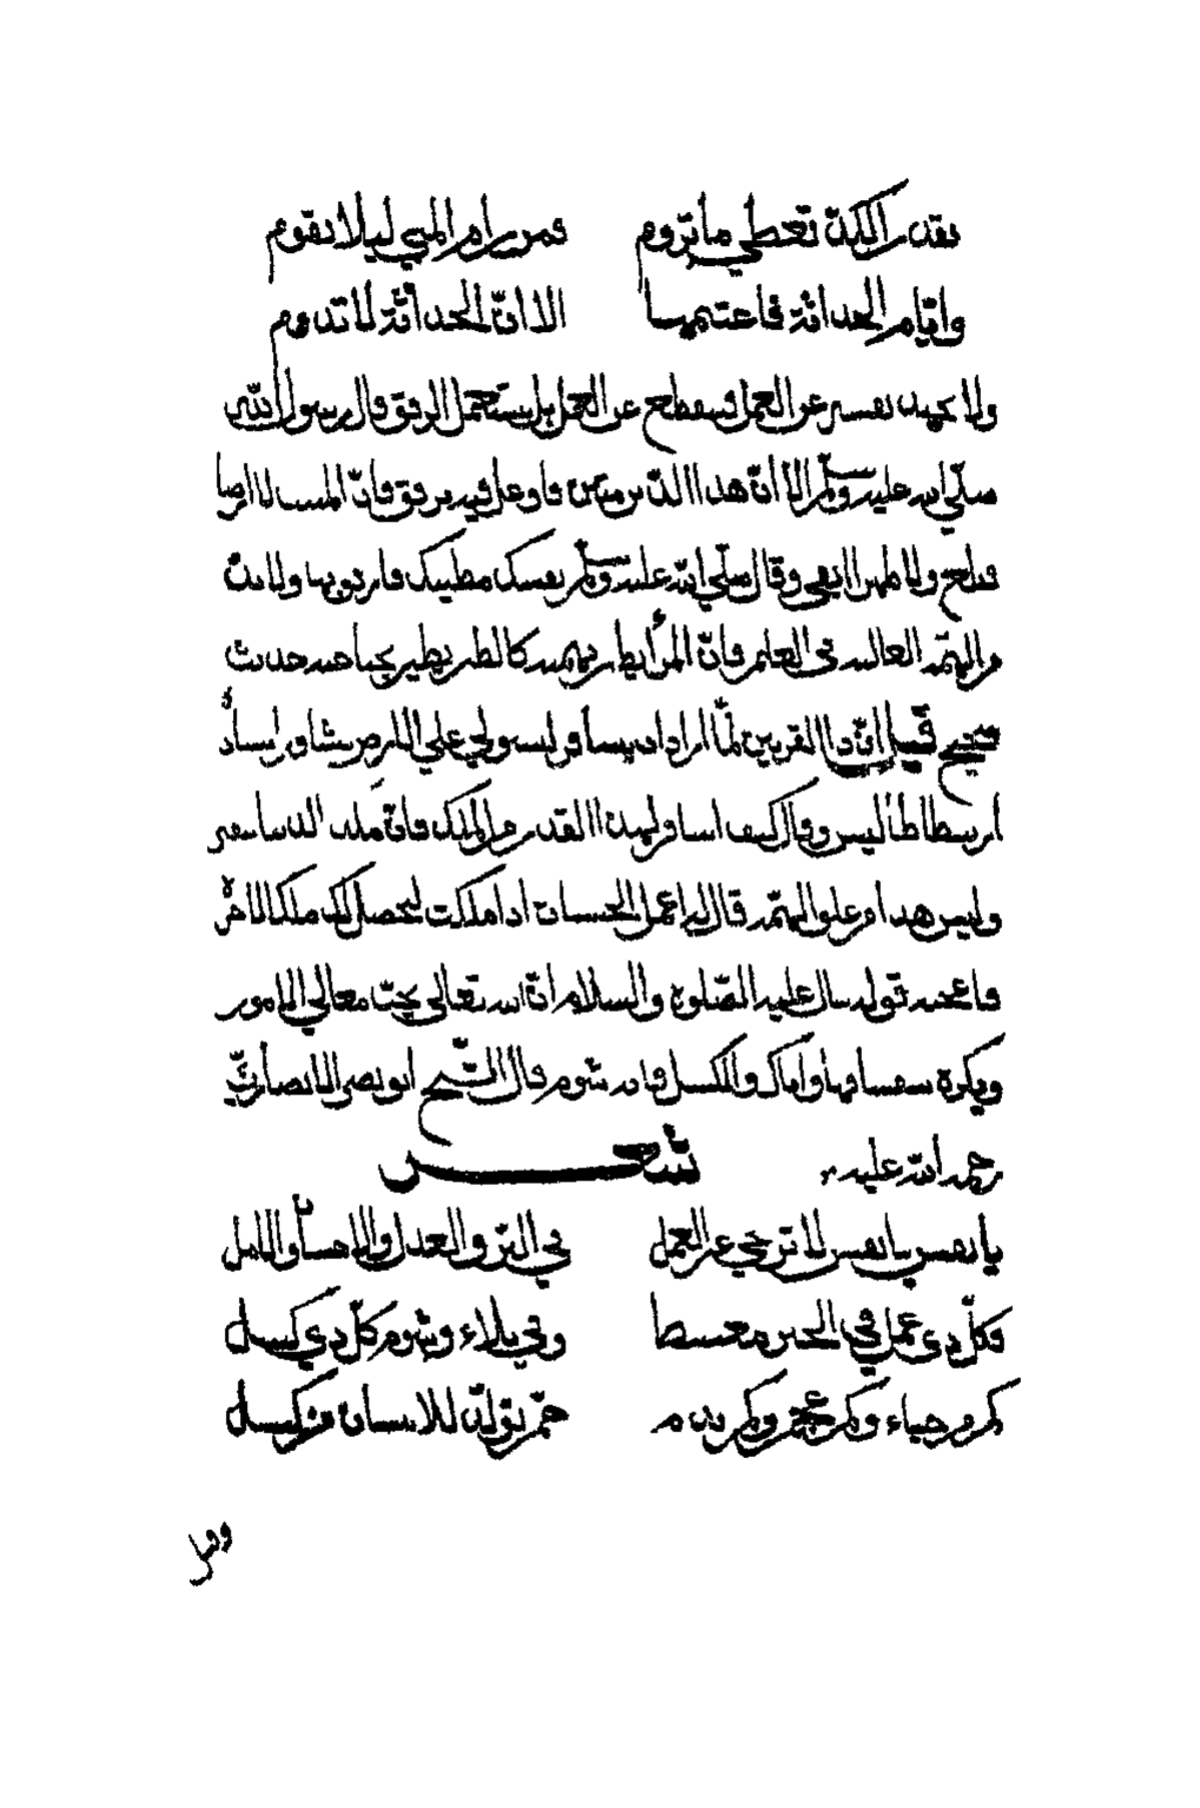 بقدر الكدّ تعطي ما تروم فمن رام المني ليلا يقوم
وايّام الحداثة فاغتنمها الا انّ الحداثة لا تدوم
ولا يجهد نفسه عن العمل فينقطع عن العمل بل يستعمل الرفق قال رسول الله
صلّي الله عليه وسلّم الا انّ هذا الدّين متين فاوغل فيه برفق فانّ المنبت لا ارضا
قطع ولا ظهرا ابقي وقال صلّي الله عليه وسلّم نفسك مطيتك فارفق بها ولا بدّ
من الهمّة العاليه في العلم فانّ المرأ يطير بهمته كالطير يطير بجناحيه حديث
صحيح قيل انّ ذا القرنين لمّا اراد ان يسافر ليستولي علي الارض يشاور ايسأذ
ارسطاطاليس وقال كيف اسافر لهذا القدر من الملك فانّ ملك الدنيا
وليس هذا من علو الهمّة قال له اعمل الحسنات اذا ملكت ليحصل لك ملك الاخرة
عليه الصّلوة والسلام انّ الله تعالي يحبّ معالي الامور
ويكره سفسافها واياك والكسل فانه شوم قال الشّيخ ابو نصر الانصاريّ
رحمة الله عليه شعــر
يا نفس يا نفس لا ترخي عن العمل في البرّ والعدل والاحسان والامل
فكلّ ذي عمل في الخير مغتبط وفي بلاء وشوم كلّ ذي كسل
كم من حياء وكم عجز وكم ندم جمّ تولّد للانسان من كسل
وقيل